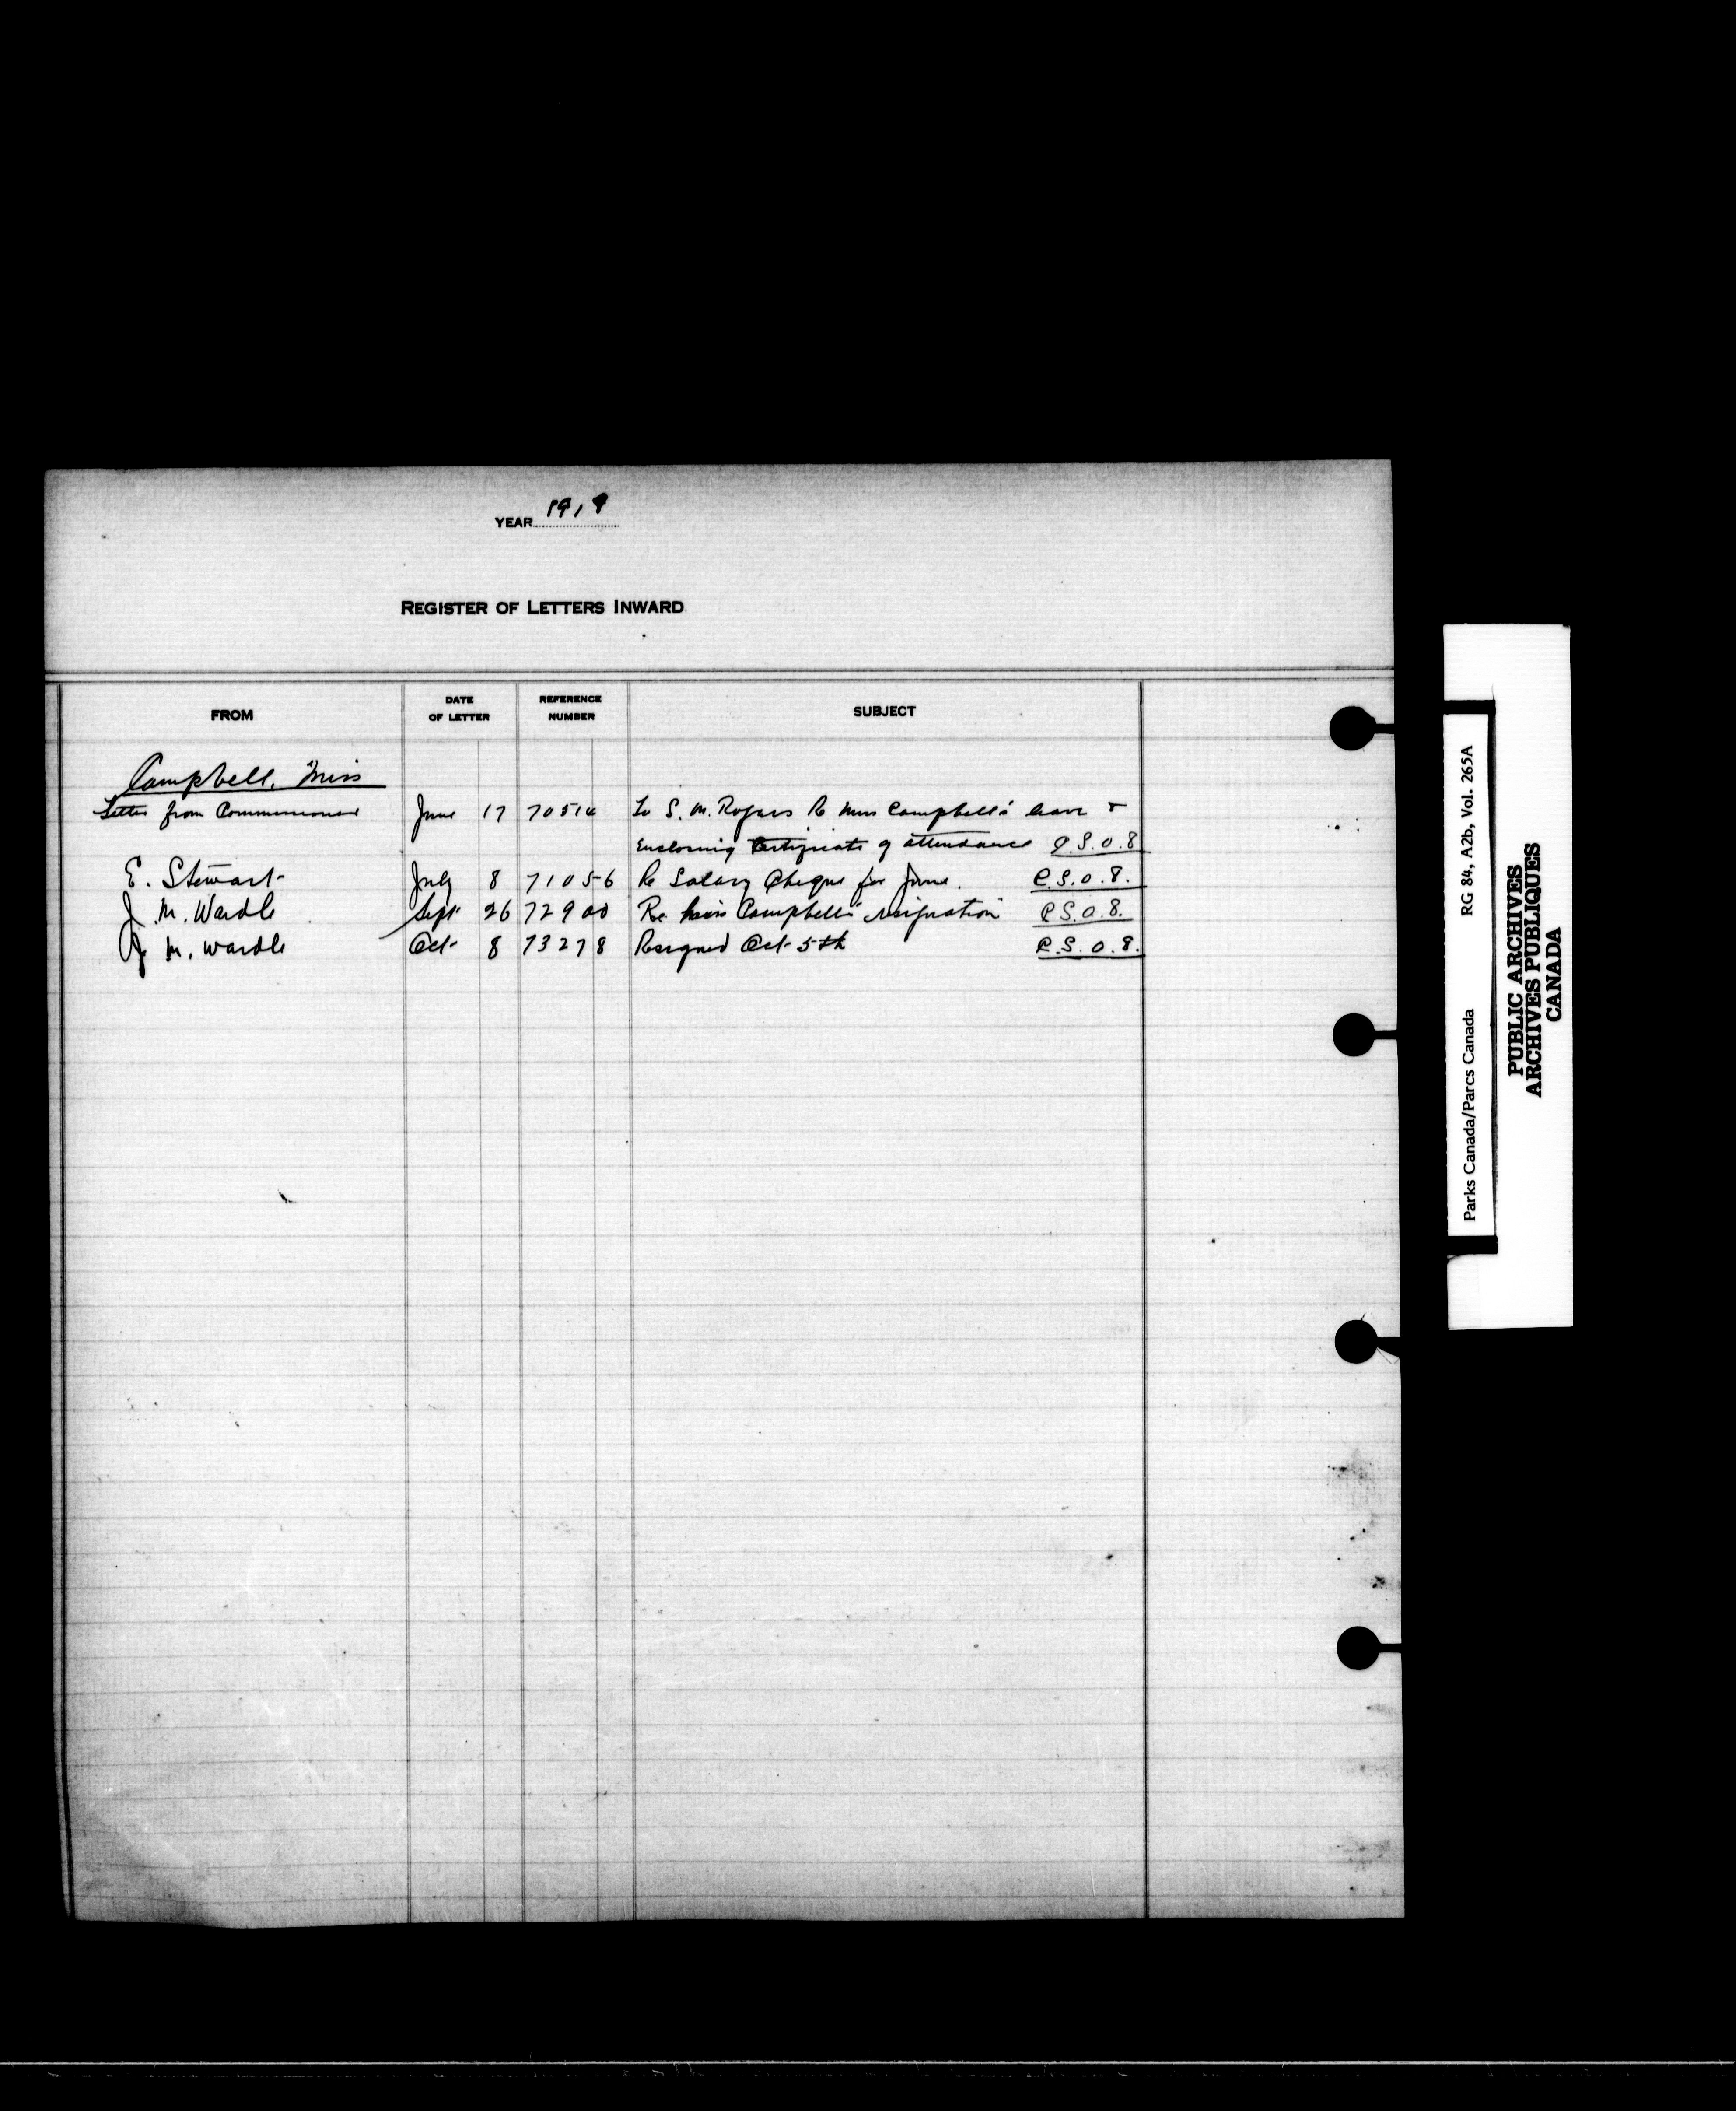 YEAR 1919
REGISTER OF LETTERS INWARD
FROM DATE OF LETTER REFERENCE NUMBER SUBJECT
Campbell, Miss
Letter from Commissioner June 17 70514 To S. M. Rogers Re Miss Campbell's leave &
Enclosing Certificate of attendance C.S.O.8
E. Stewart July 8 71056 Re Salary Cheque for June. C.S.O.8.
J. M. Wardle Sept 26 72900 Re Miss Campbell's resignation C.S.O.8.
J. M. Wardle Oct 8 73278 Resigned Oct 5th C.S.O.8.
Parks Canada/Parcs Canada RG 84, A2b, Vol. 265A
PUBLIC ARCHIVES
ARCHIVES PUBLIQUES
CANADA